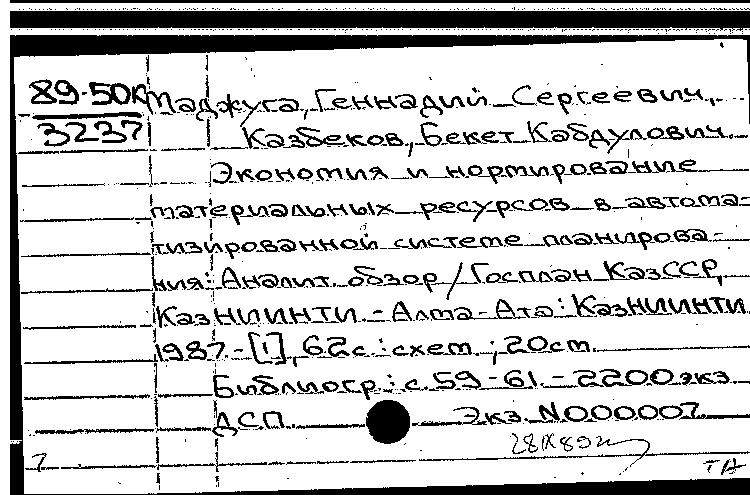 89-50к Маджуга, Геннадий Сергеевич,
3237 Казбеков, Бекет Кабдулович.
Экономия и нормирование
материальных ресурсов в автома-
тизированной системе планирова-
ния: Аналит. обзор / Госплан КазССР,
КазНИИНТИ. - Алма-Ата: КазНИИНТИ
1987. - [1], 62с.: схем ; 20см.
Библиогр.: с. 59-61. - 2200экз
ДСП. Экз. N000007.
28IX89
7 ТА